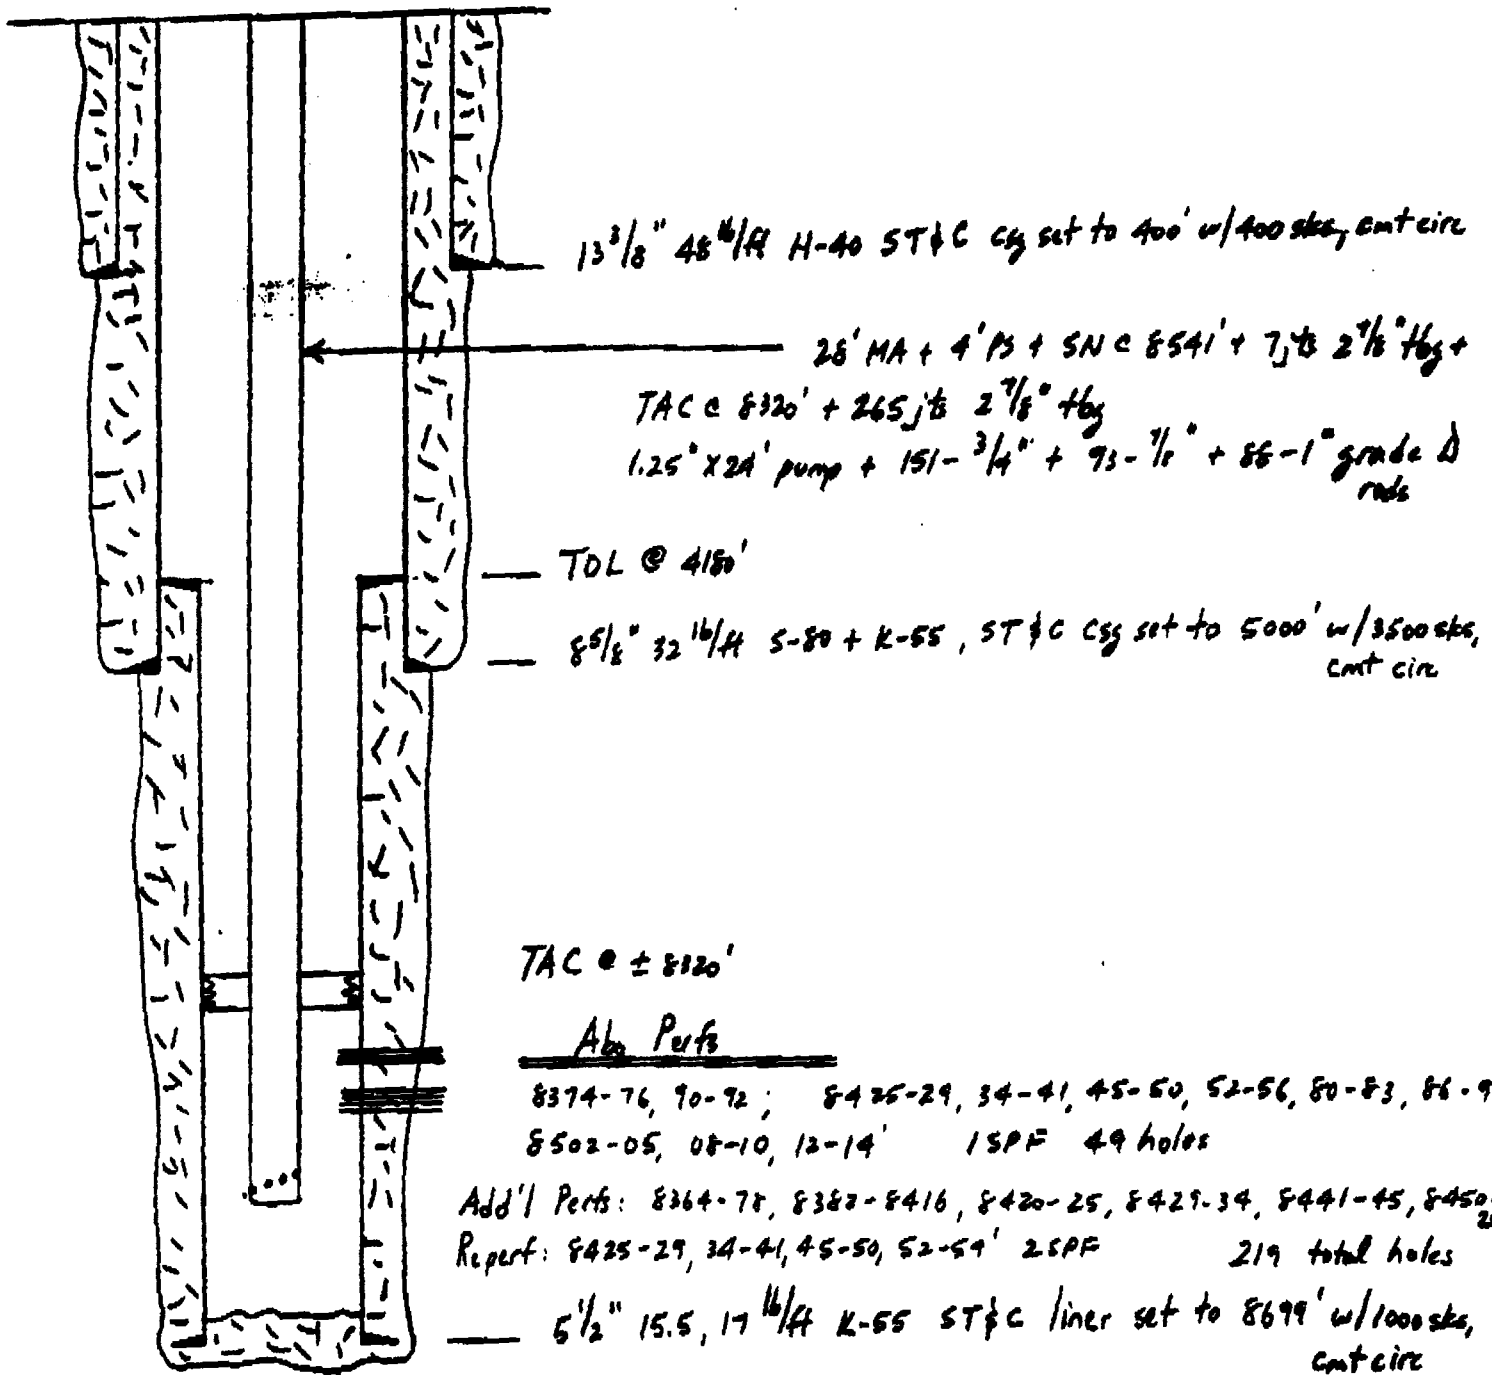 13 3/8" 48 lb/ft H-40 ST&C csg set to 400' w/400 sks, cmt circ
28' MA + 4' PS + SN @ 8541' + 7 jts 2 7/8" tbg +
TAC @ 8320' + 265 jts 2 7/8" tbg
1.25" X 24' pump + 151 - 3/4" + 93 - 7/8" + 88 - 1" grade D
rods
TOL @ 4180'
8 5/8" 32 lb/ft S-80 + K-55, ST&C Csg set to 5000' w/3500 sks,
cmt circ
TAC @ ± 8320'
Abo Perfs
8374-76, 90-92; 8425-29, 34-41, 45-50, 52-56, 80-83, 86-9
8502-05, 08-10, 12-14' 1 SPF 49 holes
Add'l Perfs: 8364-78, 8382-8416, 8420-25, 8429-34, 8441-45, 8450
Reperf: 8425-29, 34-41, 45-50, 52-54' 2 SPF 219 total holes
5 1/2" 15.5, 17 lb/ft K-55 ST&C liner set to 8699' w/1000 sks,
cmt circ